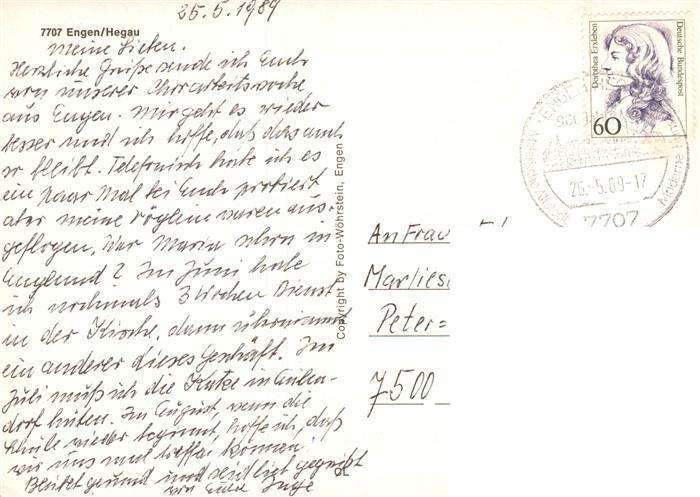 25.5.1989
7707 Engen/Hegau
Meine Lieben.
Herzliche Grüße sende ich Euch
von unserer Chorarbeitswoche
aus Engen. Mir geht es wieder
besser und ich hoffe, daß das auch
so bleibt. Telefonisch habe ich es
ein paar Mal bei Euch probiert
aber meine Vöglein waren aus-
geflogen. War Maria schon in
England? Im Juni habe
ich nochmals 3 Wochen Dienst
in der Kirche, dann übernimmt
ein anderer dieses Geschäft. Im
Juli muß ich die Katze in
dorf hüten. Im August, wenn die
Schule wieder beginnt, hoffe ich, daß
wir uns mal treffen können!
Bleibet gesund und seid lieb gegrüßt
von Eurer Inge
Copyright by Foto-Wöhrstein, Engen
Dorothea Erxleben
Deutsche Bundespost
60
26.-5.89-17
7707
An Frau
Marlies
Peter-
7500